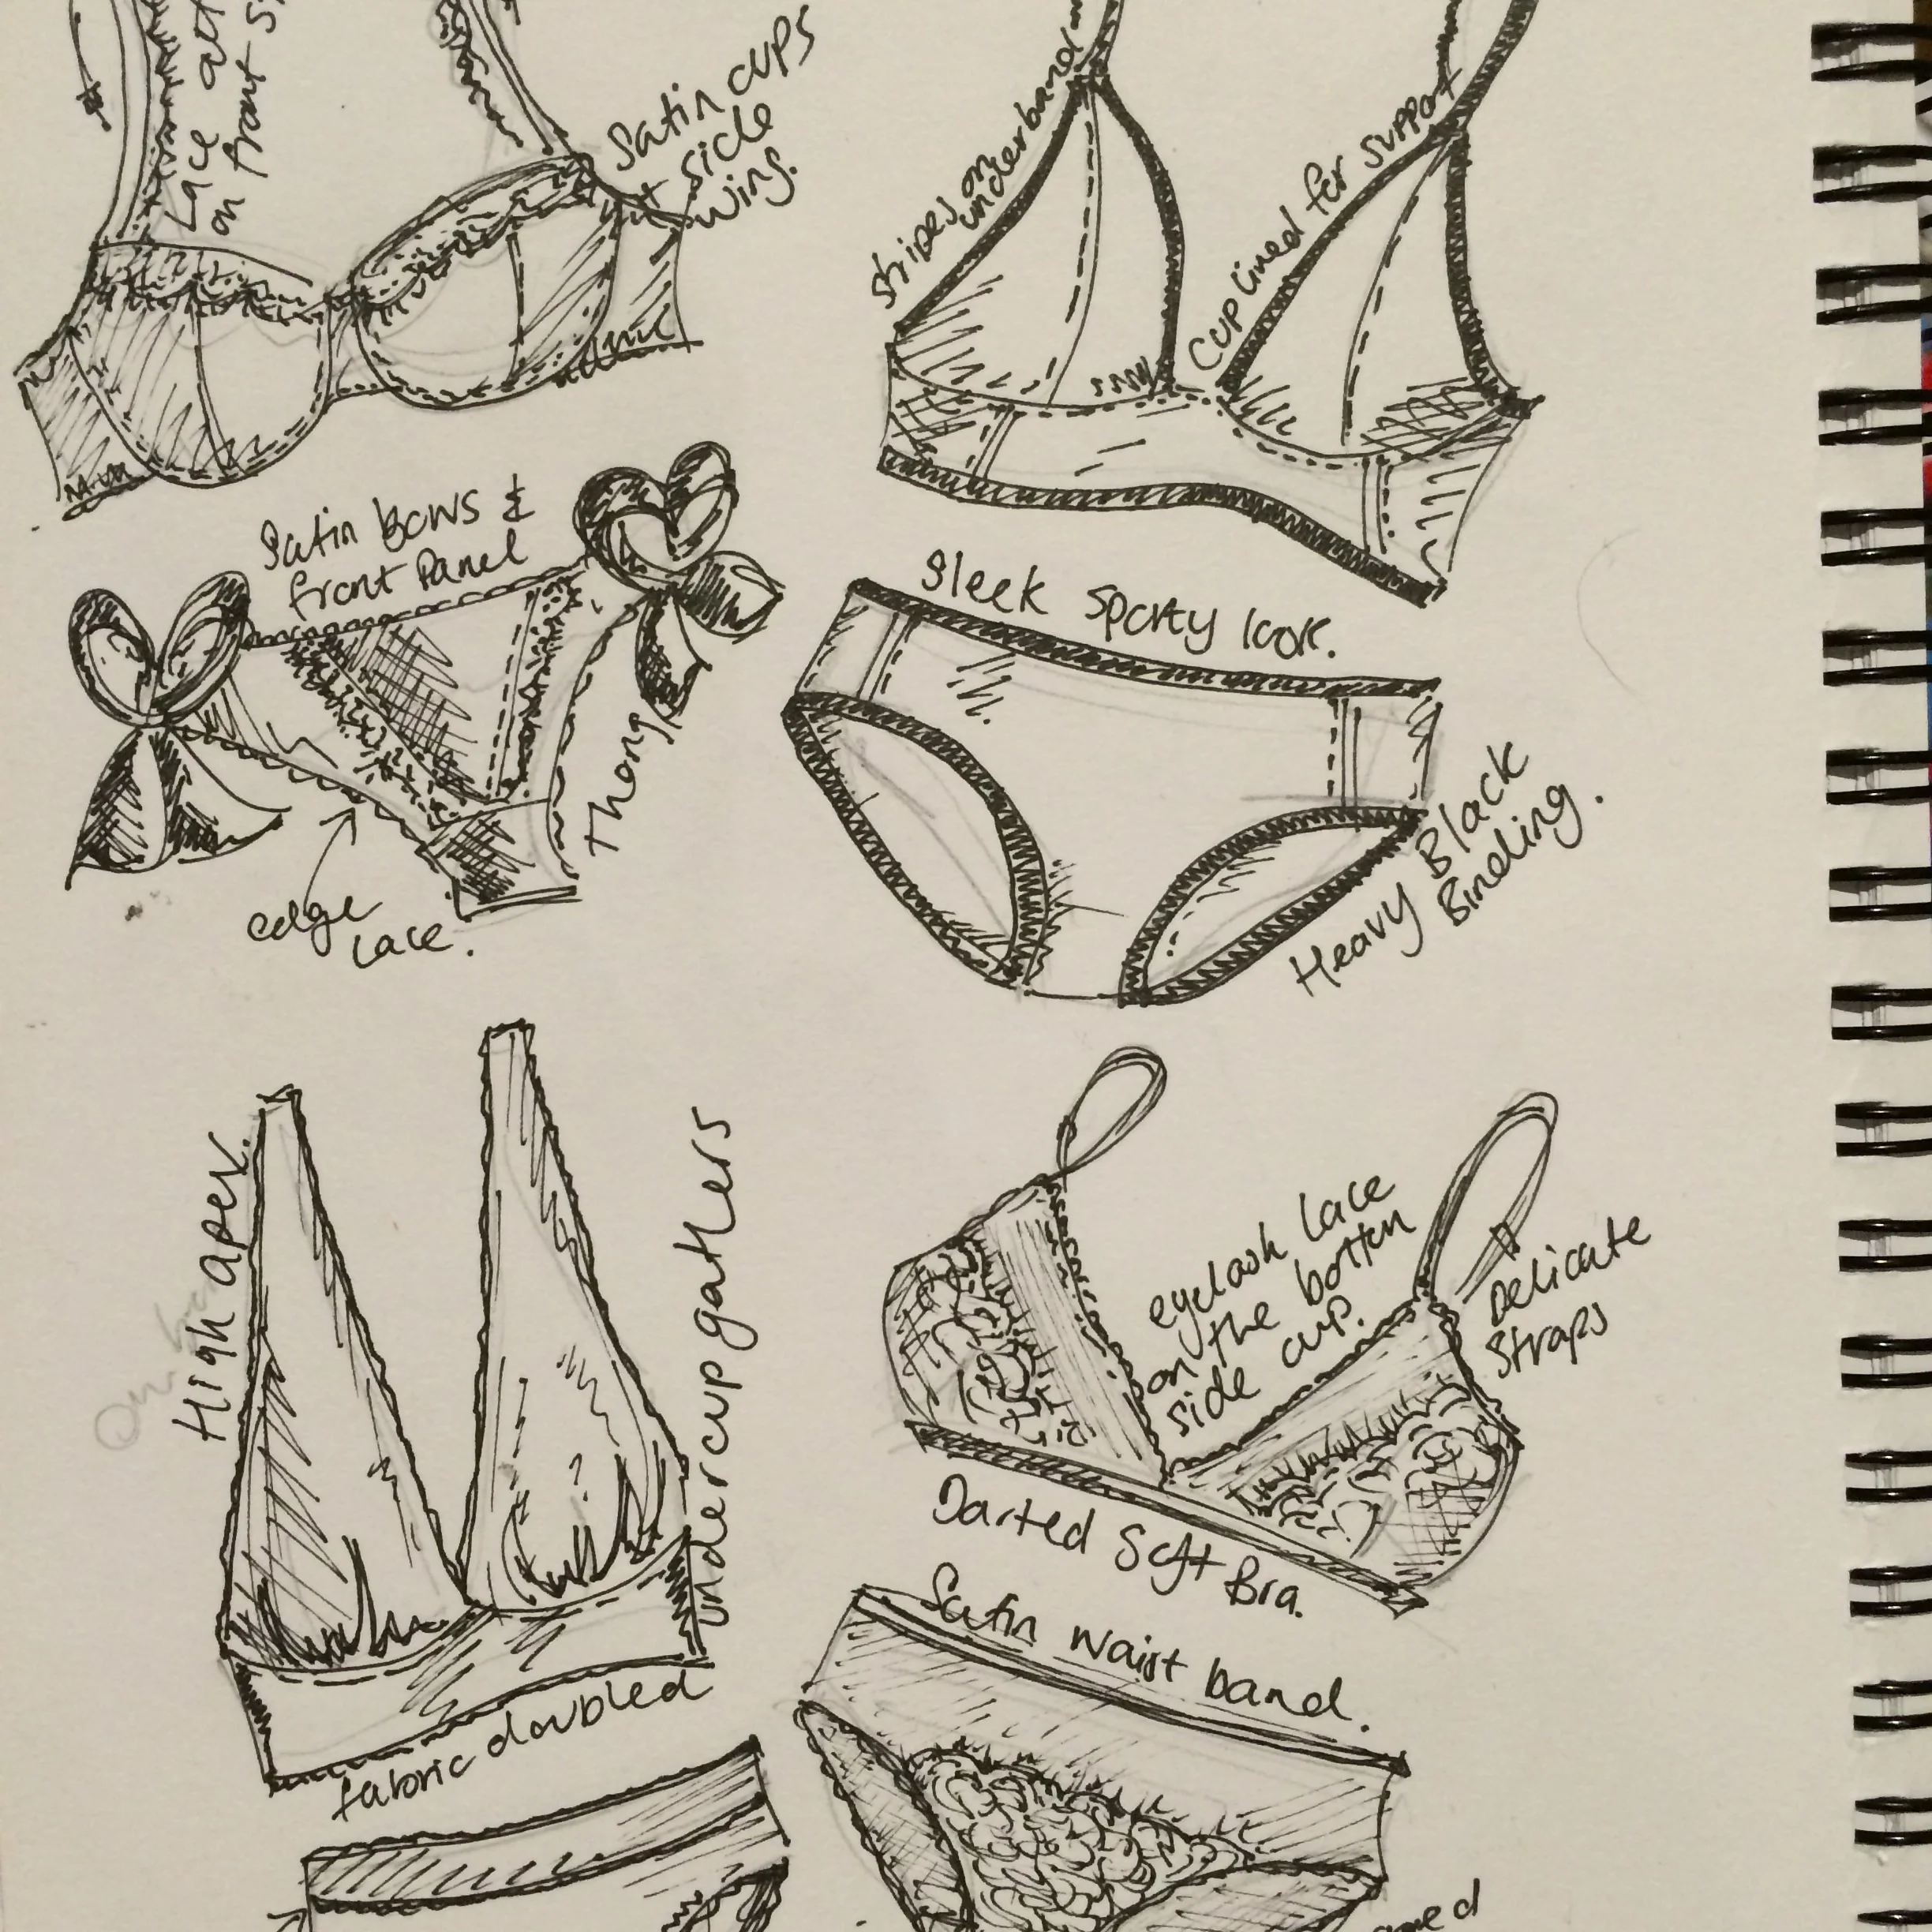 Lace
on front
Satin cups
+ side
wing.
Stripes on
underband
Cup lined for support
Satin bows &
front Panel
Thong
edge
lace.
Sleek Sporty look.
Heavy Black
Binding.
High apex.
undercup gathers
fabric doubled
eyelash lace
on the bottom
side cup.
Delicate
Straps
Darted Soft Bra.
Satin waist band.